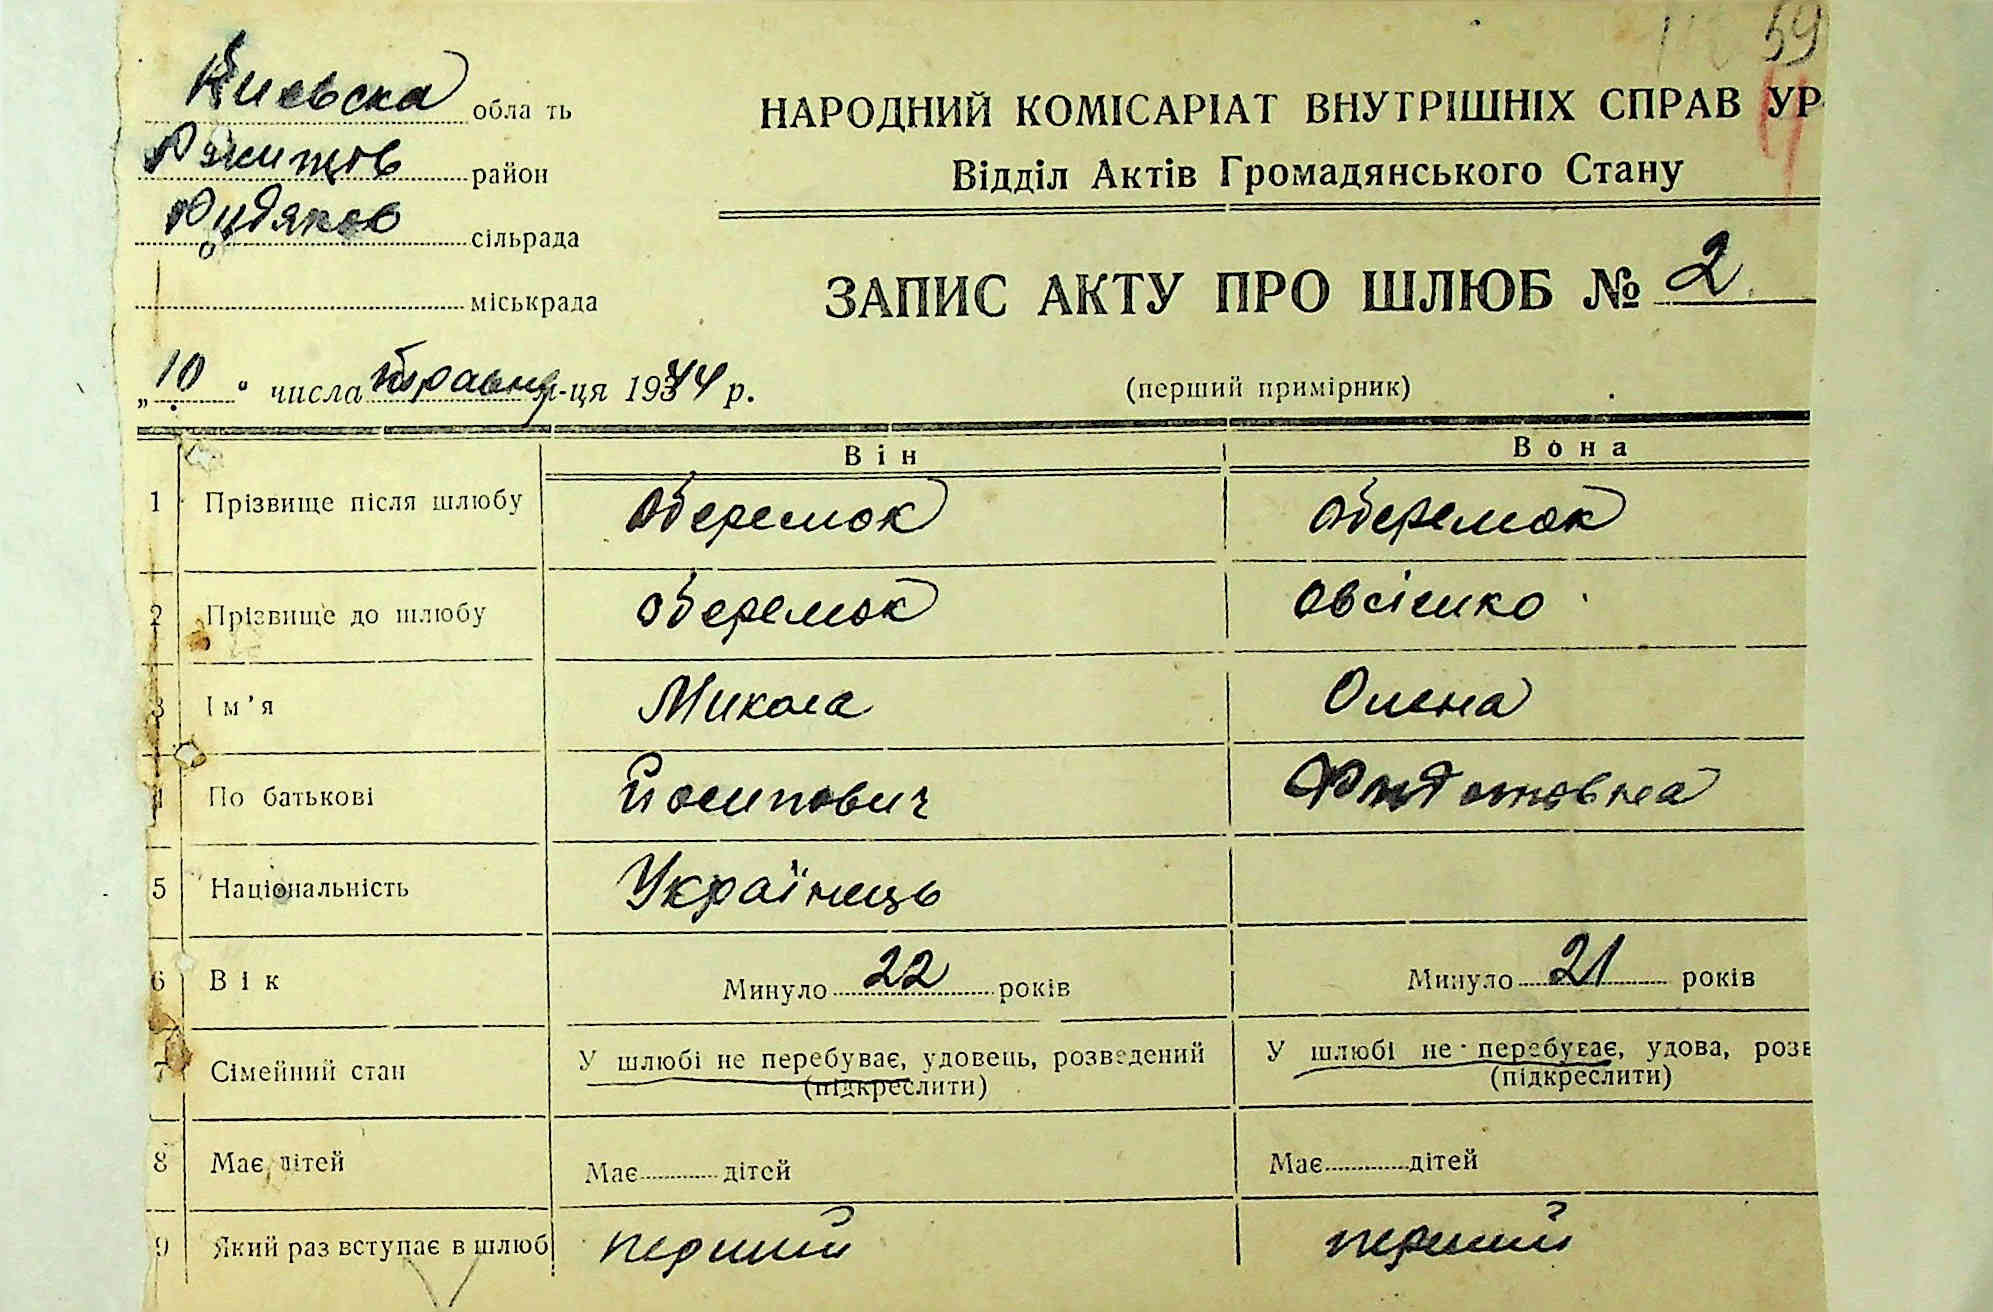 59
Киевска область
НАРОДНИЙ КОМІСАРІАТ ВНУТРІШНІХ СПРАВ УР
Ржищев район
Відділ Актів Громадянського Стану
Рудяков сільрада
міськрада
ЗАПИС АКТУ ПРО ШЛЮБ № 2
„10“ числа травня м-ця 1944 р.
(перший примірник)
Він Вона
1 Прізвище після шлюбу Оберемок Оберемок
2 Прізвище до шлюбу Оберемок Овсієнко
3 Ім’я Микола Олена
4 По батькові Йосипович
5 Національність Українець
6 Вік Минуло 22 років Минуло 21 років
7 Сімейний стан У шлюбі не перебуває, удовець, розведений У шлюбі не перебуває, удова, розв
(підкреслити) (підкреслити)
8 Має дітей Має дітей Має дітей
9 Який раз вступає в шлюб перший перший